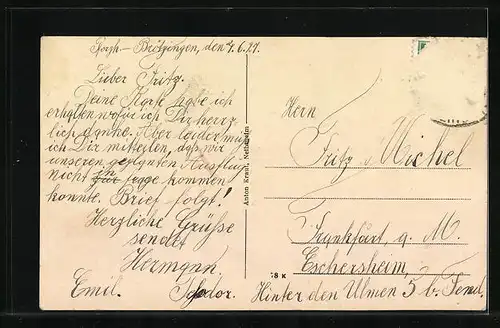 Pforzh.-Brötzingen, den 4.6.21.
Lieber Fritz.
Deine Karte habe ich
erhalten wofür ich Dir herz
lich danke. Aber leider muß
ich Dir mitteilen, daß wir
unseren geplanten Ausflug
nicht kommen
konnte. Brief folgt!
Herzliche Grüsse
sendet
Hermann
Emil. Teodor.
Anton Kraut, Nettesheim
Herrn
Fritz Michel
Frankfurt, a. M.
Eschersheim,
8 K
Hinter den Ulmen 5 b.